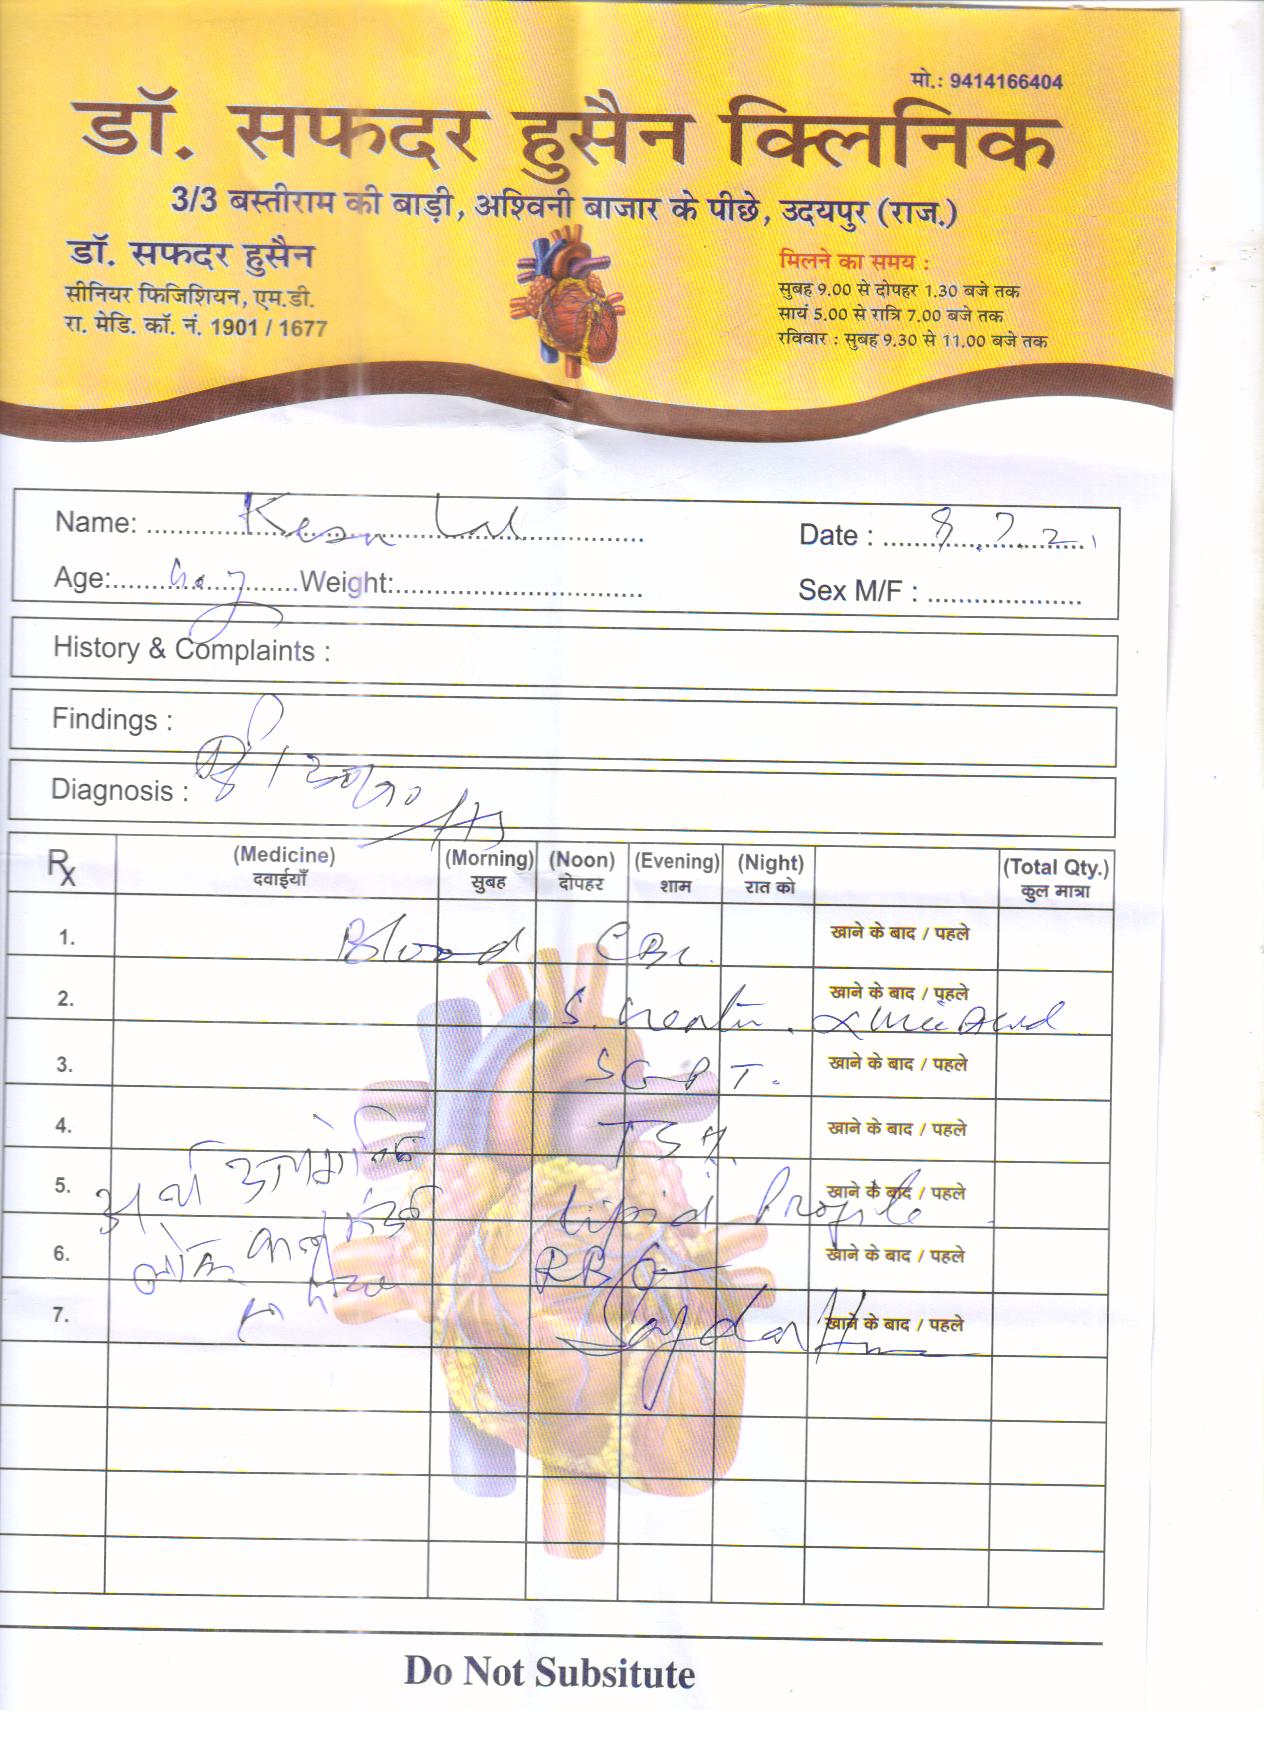 मो.: 9414166404
डॉ. सफदर हुसैन क्लिनिक
3/3 बस्तीराम की बाड़ी, अश्विनी बाजार के पीछे, उदयपुर (राज.)
डॉ. सफदर हुसैन
सीनियर फिजिशियन, एम.डी.
रा. मेडि. कॉ. नं. 1901 / 1677
मिलने का समय :
सुबह 9.00 से दोपहर 1.30 बजे तक
सायं 5.00 से रात्रि 7.00 बजे तक
रविवार : सुबह 9.30 से 11.00 बजे तक
Name: Lal Date : 8.7.21
Age: Weight: Sex M/F :
History & Complaints :
Findings :
Diagnosis :
Rx (Medicine) (Morning) (Noon) (Evening) (Night) (Total Qty.)
दवाईयाँ सुबह दोपहर शाम रात को कुल मात्रा
1. Blood CBC खाने के बाद / पहले
2. खाने के बाद / पहले
S. Uric Acid
3. SGPT. खाने के बाद / पहले
4. TSH. खाने के बाद / पहले
5. Lipid Profile खाने के बाद / पहले
6. RBS खाने के बाद / पहले
7. खाने के बाद / पहले
Do Not Subsitute